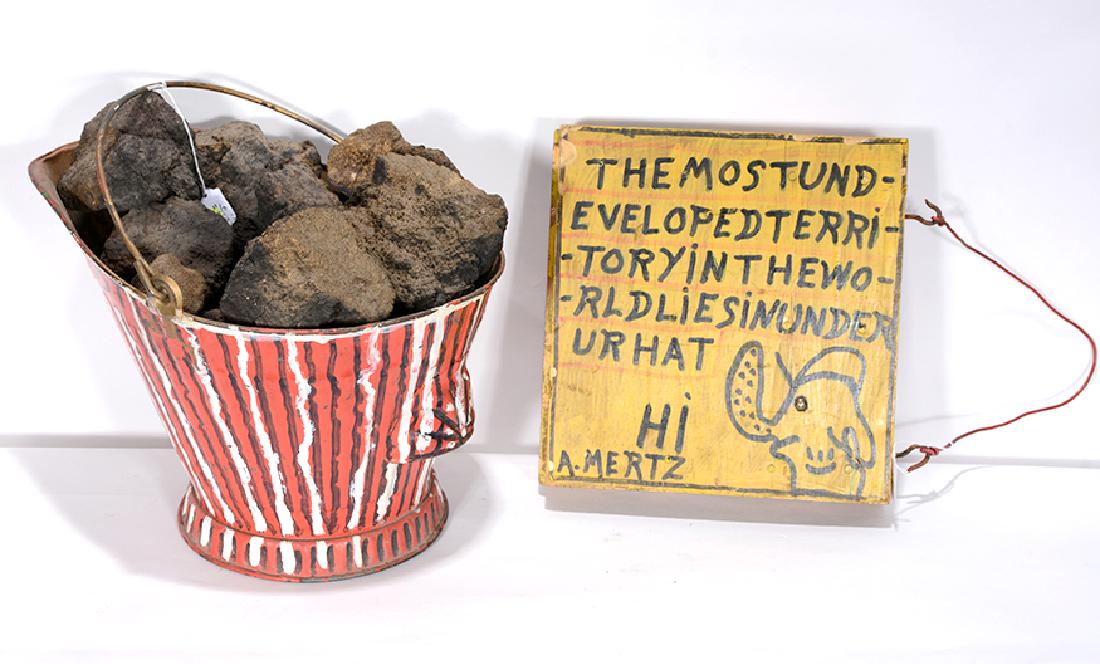 THEMOSTUND-
EVELOPEDTERRI-
-TORYiNTHEWO-
-RLDLiESiNUNDER
URHAT
Hi
A.MERTZ